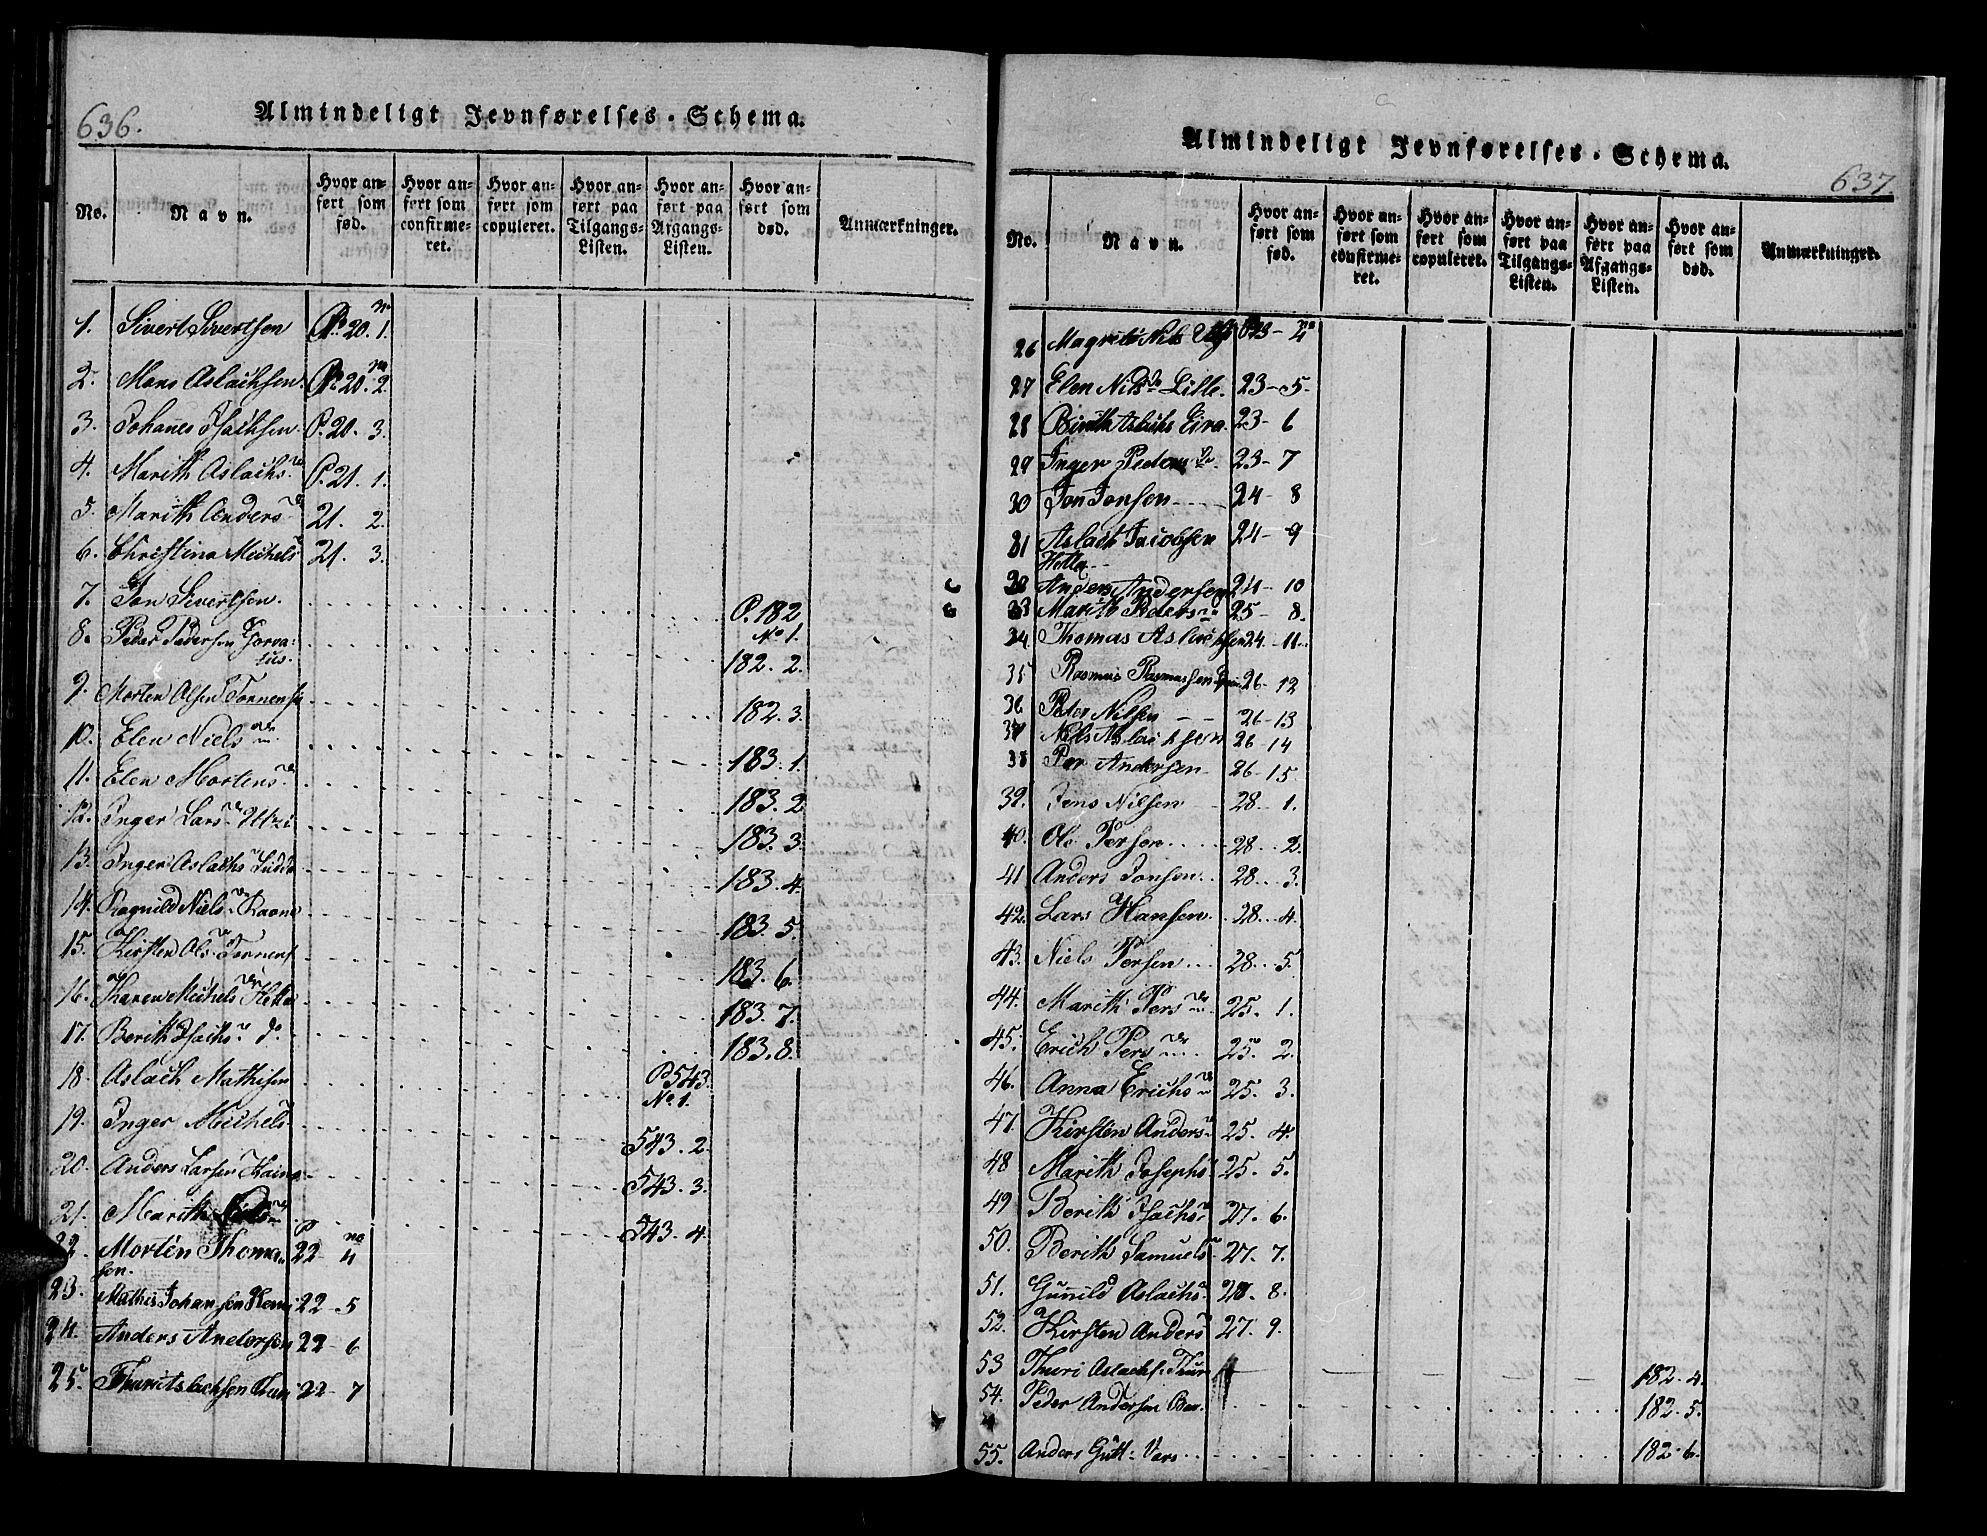 636.
Almindeligt Jevnførelses-Schema.
No.
Navn.
Hvor anført som fød.
Hvor anført som confirmeret.
Hvor anført som copuleret.
Hvor anført paa Tilgangs-Listen.
Hvor anført paa Afgangs-Listen.
Hvor anført som død.
Anmærkninger.
1. Sivert Sivertsen P. 20. No 1.
2. Mons Aslachsen. P. 20. No 2
3. Johanes Isachsen. P. 20. 3.
4. Marith Aslachs. P. 21. 1.
5. Marith Anders 21. 2.
6. Christina Michels 21. 3.
7. Jon Sivertsen. P. 182 No 1.
8. Peder Pedersen 182. 2.
9. Morten Olsen 182. 3.
10. Elen Niels 183. 1.
11. Elen Mortens 183. 2
12. Inger Lars Utzi 183. 3.
13. Inger Aslachs 183. 4.
14. Ragnild Niels 183. 5.
15. Kirsten Ols 183. 6.
16. Karen Michels Hetta 183. 7.
17. Berith Isachs do 183. 8.
18. Aslach Mathisen P. 543. No. 1.
19. Inger Michels 543. 2.
20. Anders Larsen 543. 3.
21. Marith 543. 4.
22. Morten Thomasen. P 22- No 4
23. Mathis Johansen 22-5
24. Anders Andersen 22-6
25. 22-7
637.
Almindeligt Jevnførelses-Schema.
No.
Navn.
Hvor anført som fød.
Hvor anført som confirmeret.
Hvor anført som copuleret.
Hvor anført paa Tilgangs-Listen.
Hvor anført paa Afgangs-Listen.
Hvor anført som død.
Anmærkninger.
26 Magrete Nils P 23- No 4
27 Elen Nilsdr Lille. 23-5.
28 Aslachs Eira. 23-6
29 Inger Peders 23-7
30 Jon Jonsen 24-8
31 Aslach Jacobsen Hetta 24-9
32 Anders Andersen 24-10
33 Marith Peders 25-8.
34 Thomas Aslachsen 24-11.
35 Rasmus Rasmussen 26-12
36 Peter Nilsen 26-13
37 Nils Aslachsen 26-14
38 Per Andersen 26-15
39. Jens Nilsen 28. 1.
40. Ole Persen 28. 2.
41 Anders Jonsen 28. 3.
42. Lars Hansen. 28. 4.
43. Niels Persen 28. 5.
44. Marith Pers 25. 1.
45. Erich Pers 25. 2.
46. Anna Erichs 25. 3.
47. Kirsten Anders 25. 4.
48 Marith Josephs 25. 5.
49 Berith Isachs 27. 6.
50. Berith Samuels 27. 7.
51. Gunild Aslachs 27. 8.
52. Kirsten Anders 27. 9.
53 Thuri Aslachs. 182. 4.
54. Peder Andersen 182. 5.
55. Anders Gutt: Vars 182. 6.